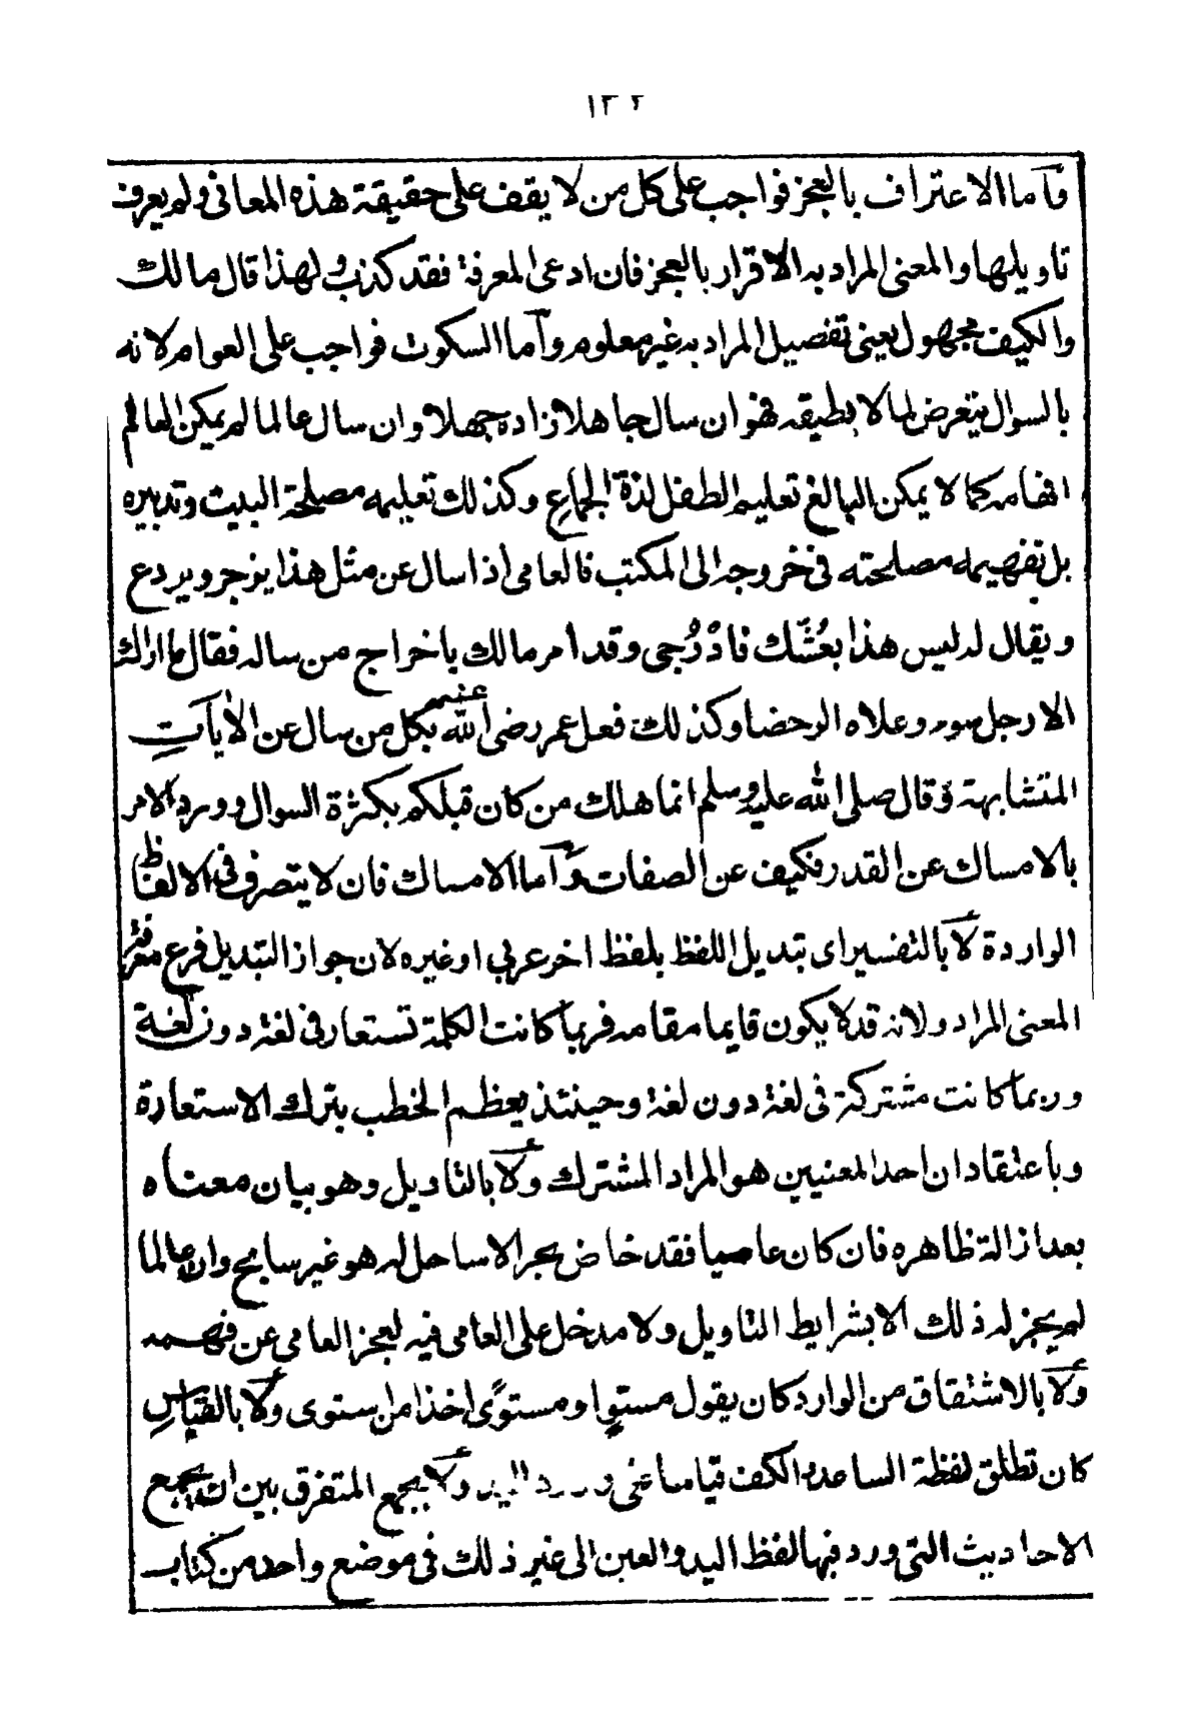 ١٣٢
وأما الاعتراف بالعجز فواجب على كل من لا يقف على حقيقة هذه المعانى ولم يعرف
تاويلها والمعنى المراد به الاقرار بالعجز فان ادعى المعرفة فقد كذب ولهذا قال مالك
والكيف مجهول يعنى تفصيل المراد به غير معلوم وأما السكوت فواجب على العوام لانه
بالسوال يتعرض لما لا يطيقه فهو ان سال جاهلا زاده جهلا وان سال عالما لم يمكن العالم
افهامه كما لا يمكن البالغ تعليم الطفل لذة الجماع وكذلك تعليمه مصلحة البيت وتدبيره
بل تفهيمه مصلحته فى خروجه الى المكتب فالعامى اذا سال عن مثل هذا يزجر ويردع
ويقال له ليس هذا بعُشّك فادْرُجى وقد امر مالك باخراج من ساله فقال ما اراك
الا رجل سوء وعلاه الرحضا وكذلك فعل عمر رضى الله عنه بكل من سال عن الأيآتِ
المتشابهة وقال صلى الله عليه وسلم انما هلك من كان قبلكم بكثرة السوال وورد الامر
بالامساك عن القدر فكيف عن الصفات وأما الامساك فان لا يتصرف فى الالفاظ
الواردة لا بالتفسير اى تبديل اللفظ بلفظ اخر عربي او غيره لان جواز التبديل فرع معرفة
المعنى المراد ولانه قد لا يكون قايما مقامه فربما كانت الكلمة تستعار فى لغة دون لغة
وربما كانت مشتركة فى لغة دون لغة وحينئذ يعظم الخطب بترك الاستعارة
وباعتقاد ان احد المعنيين هو المراد المشترك ولا بالتاويل وهو بيان معناه
بعد ازالة ظاهره فان كان عاصيا فقد خاض بحر الا ساحل له هو غير سابح وان عالما
لم يجز له ذلك الا بشرايط التاويل ولا مدخل على العامى فيه لعجز العامى عن فهمه
ولا بالاشتقاق من الوارد كان يقول مستوٍ او مستوًى اخذا من استوى ولا بالقياسِ
كان تطلق لفظة الساعد والكف قياسا على ورود اليد ولا يجمع المتفرق بين ان يجمع
الاحاديث التى ورد فيها لفظ اليد والعين الى غير ذلك فى موضع واحد من كتاب